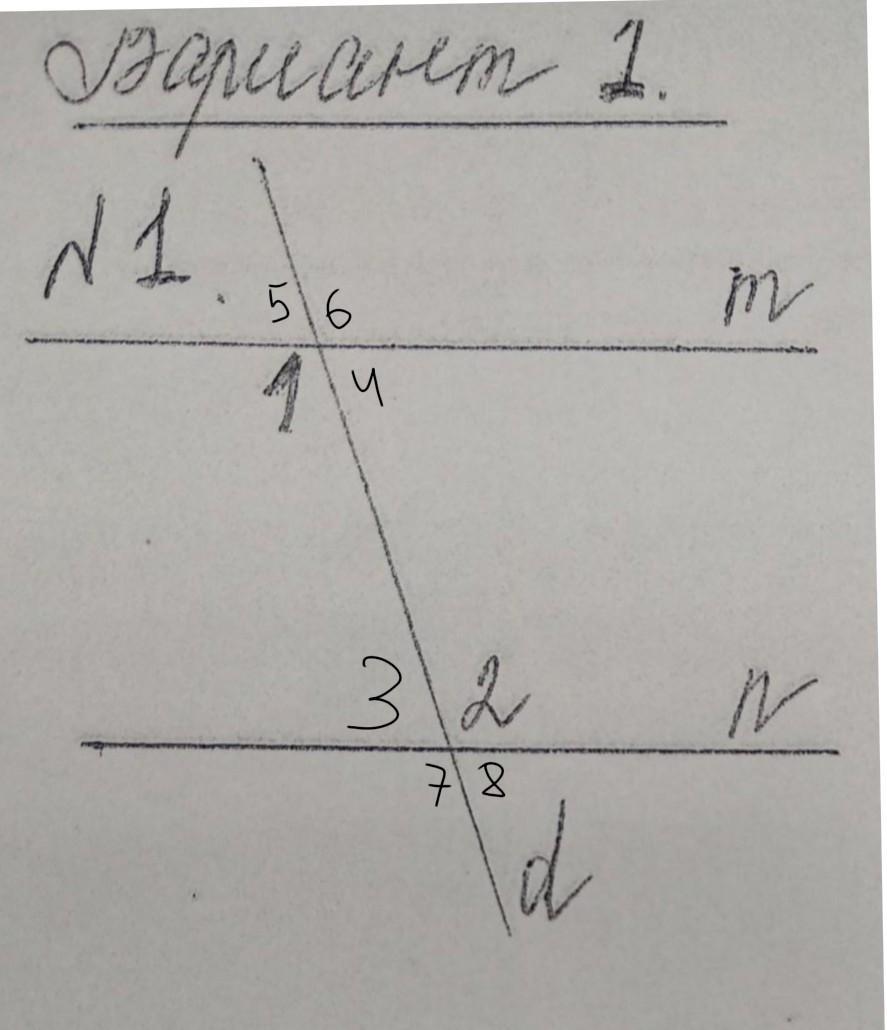 Вариант 1.
№1.
5 6
m
1 4
3 2
n
7 8
d